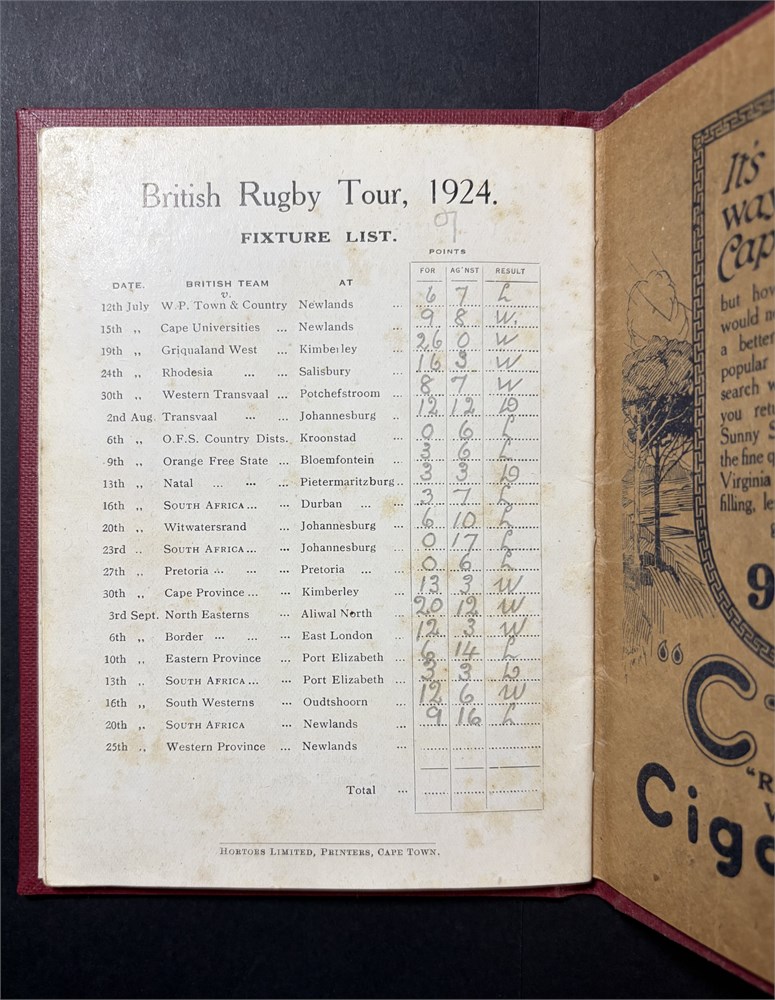 British Rugby Tour, 1924.
FIXTURE LIST.
POINTS
FOR AG'NST RESULT
DATE. BRITISH TEAM AT
v.
12th July W.P. Town & Country Newlands ... 6 7 L
15th ,, Cape Universities ... Newlands ... 9 8 W.
19th ,, Griqualand West ... Kimberley ... 26 0 W
24th ,, Rhodesia ... ... Salisbury ... 16 3 W
30th ,, Western Transvaal ... Potchefstroom ... 8 7 W
2nd Aug. Transvaal ... ... Johannesburg .. 12 12 D
6th ,, O.F.S. Country Dists. Kroonstad ... 0 6 L
9th ,, Orange Free State ... Bloemfontein ... 3 6 L
13th ,, Natal ... ... ... Pietermaritzburg .. 3 3 D
16th ,, SOUTH AFRICA ... ... Durban ... ... 3 7 L
20th ,, Witwatersrand ... Johannesburg ... 6 10 L
23rd ,, SOUTH AFRICA ... ... Johannesburg ... 0 17 L
27th ,, Pretoria ... ... Pretoria ... ... 0 6 L
30th ,, Cape Province ... ... Kimberley ... 13 3 W
3rd Sept. North Easterns ... Aliwal North ... 20 12 W
6th ,, Border ... ... ... East London ... 12 3 W
10th ,, Eastern Province ... Port Elizabeth ... 6 14 L
13th ,, SOUTH AFRICA ... ... Port Elizabeth ... 3 3 D
16th ,, South Westerns ... Oudtshoorn ... 12 6 W
20th ,, SOUTH AFRICA ... Newlands ... 9 16 L
25th ,, Western Province ... Newlands ...
Total ...
HORTORS LIMITED, PRINTERS, CAPE TOWN.
It's
way
Cap
but how
would n
a bette
popular
search w
you ret
Sunny S
the fine q
Virginia
filling, le
9
"C
"R
Ciga